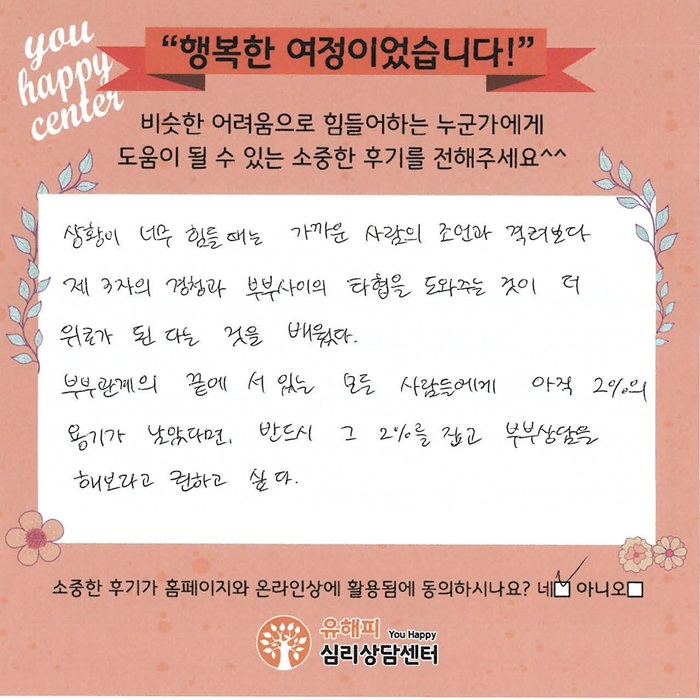 you
happy
center
“행복한 여정이었습니다!”
비슷한 어려움으로 힘들어하는 누군가에게
도움이 될 수 있는 소중한 후기를 전해주세요^^
상황이 너무 힘들때는 가까운 사람의 조언과 격려보다
제 3자의 경청과 부부사이의 타협을 도와주는 것이 더
위로가 된 다는 것을 배웠다.
부부관계의 끝에 서 있는 모든 사람들에게 아직 2%의
용기가 남았다면, 반드시 그 2%를 잡고 부부상담을
해보라고 권하고 싶다.
소중한 후기가 홈페이지와 온라인상에 활용됨에 동의하시나요? 네 아니오
유해피 You Happy
심리상담센터